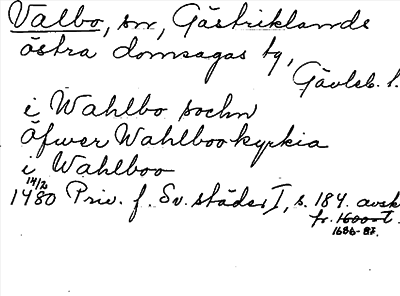 Valbo, sn, Gästriklands
östra domsagas tg,
Gävleb. l.
i Wahlbo sochn
öfwer Wahlbookyrkia
i Wahlboo
14/2
1480 Priv. f. Sv. städer I, s. 184. avskr
fr. 1600-t.
1686-87.